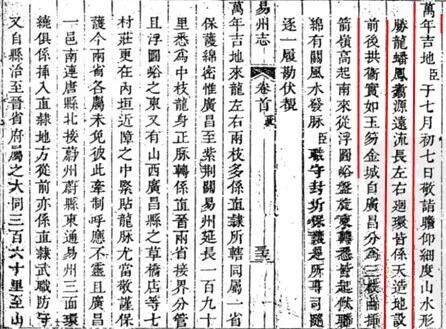 萬年吉地臣于七月初七日敬謹瞻仰細度山水形
勝龍蟠鳳翥源遠流長左右廻環皆係天造地設
前後拱衛實如玉笏金城自廣昌分為三椏由插
箭嶺高起南來從浮圖峪盤旋更轉悉皆起伏聯
綿有關風水發脈臣職守封圻保護是所專司謹
逐一履勘伏覩
易州志 卷首
萬年吉地來龍左右兩枝多係直隸所轄同屬一省
保護綿密惟廣昌至紫荆關易州延長一百九十
里悉為中枝龍身正脈轉係直晉兩省接界分管
且浮圖峪之東又有山西廣昌縣之草橋店等七
村莊更在內垣近障之中緊貼龍脈尤當敬謹保
護今兩省各屬未免彼此牽制呼應不靈且廣昌
一邑南連唐縣北接蔚州蔚縣東通易州三面環
繞俱係插入直隸地方從前亦係直隸武職防守
又自縣治至晉省府屬之大同三百六十里至山